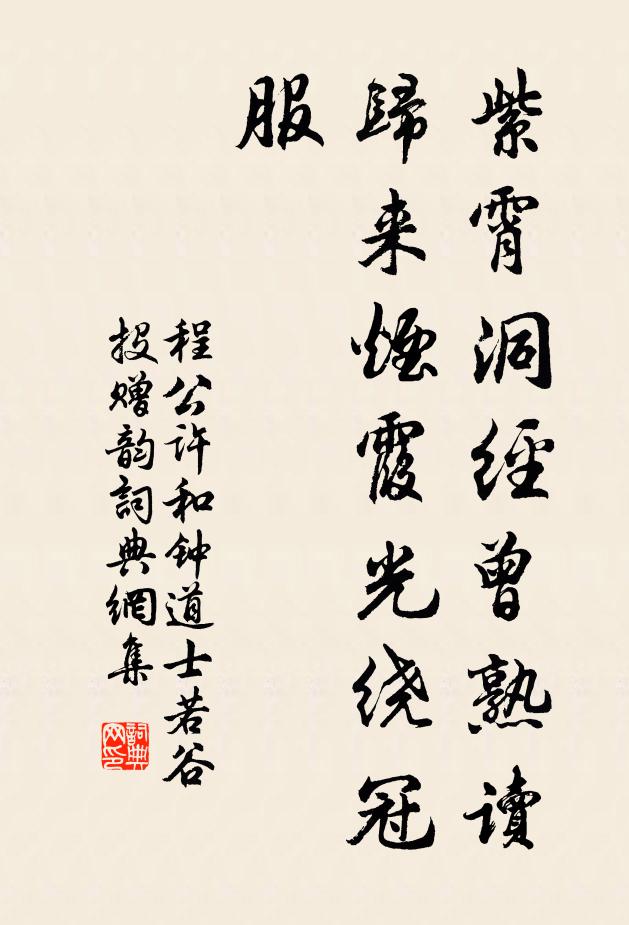 紫霄洞經曾熟读
歸来煙霞光绕冠
服
程公许和钟道士若谷
投赠韵詞典網集
詞典网印